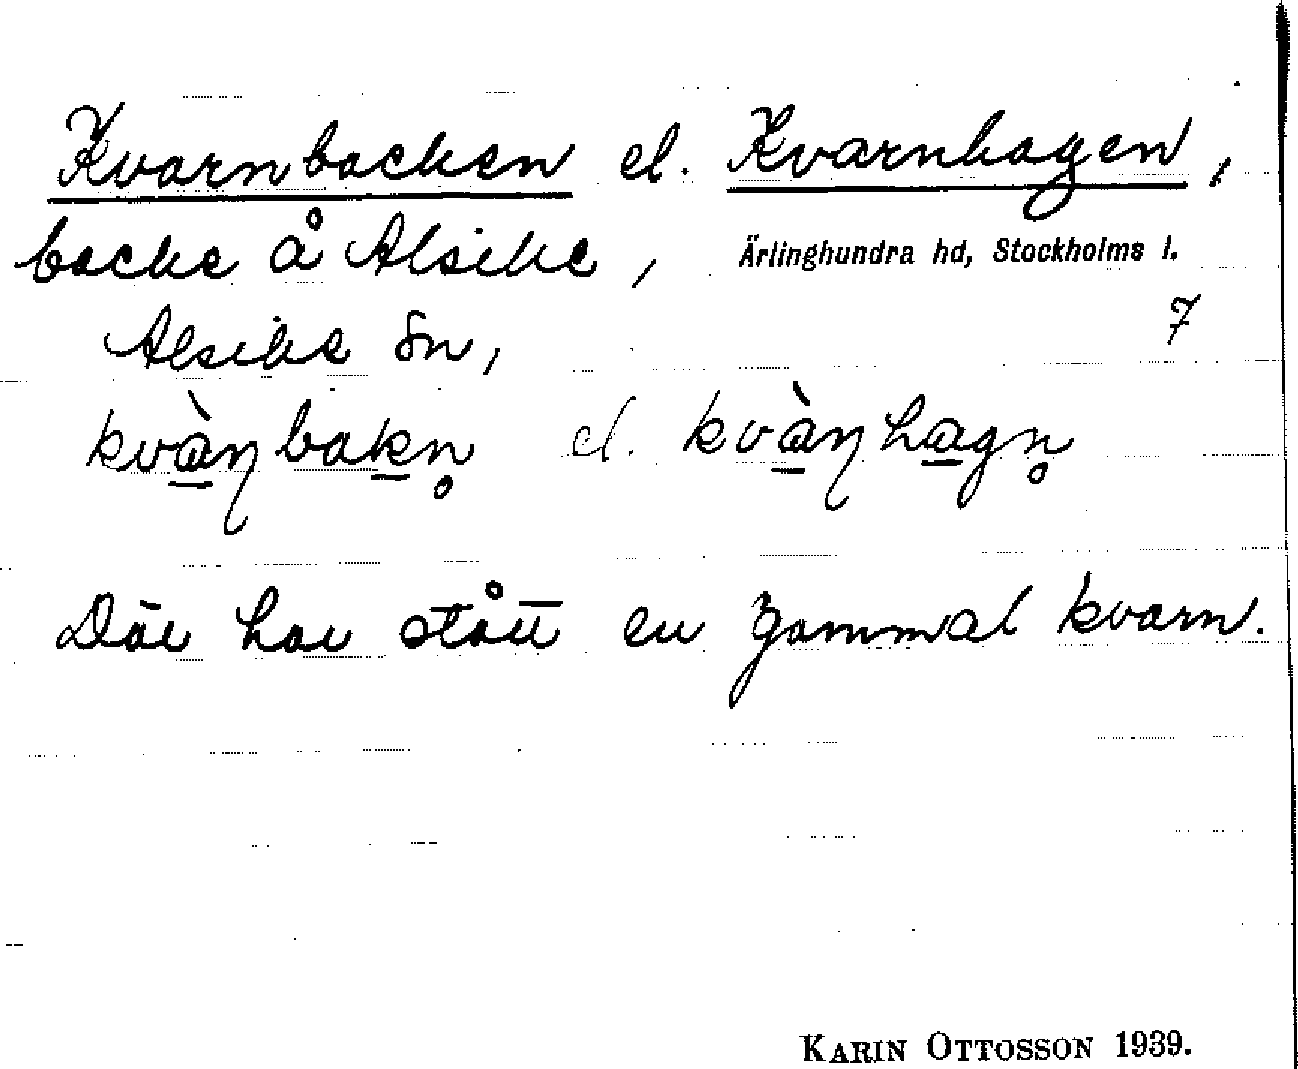 Kvarnbacken el. Kvarnhagen,
backe å Alsike, Ärlinghundra hd, Stockholms l.
Alsike sn, 7
kvà̱ɳbaḵn̥ el. kvà̱ɳha̱gn̥
Där har stått en gammal kvarn.
KARIN OTTOSSON 1939.